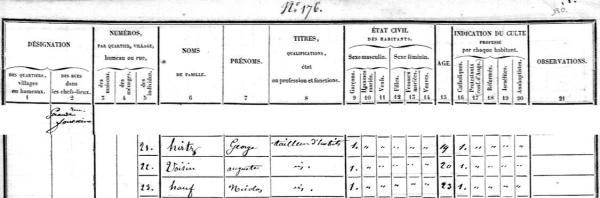 N.º 176.
DÉSIGNATION
DES QUARTIERS, villages ou hameaux. 1
DES RUES dans les chefs-lieux. 2
NUMÉROS, PAR QUARTIER, VILLAGE, hameau ou rue,
des maisons. 3
des ménages. 4
des individus. 5
NOMS DE FAMILLE. 6
PRÉNOMS. 7
TITRES, QUALIFICATIONS, état ou profession et fonctions. 8
ÉTAT CIVIL DES HABITANTS.
Sexe masculin.
Garçons. 9
Hommes mariés. 10
Veufs. 11
Sexe féminin.
Filles. 12
Femmes mariées. 13
Veuves. 14
AGE. 15
INDICATION DU CULTE PROFESSÉ par chaque habitant.
Catholiques. 16
Protestants conf. d'Augs. 17
Réformés. 18
Israélites. 19
Anabaptistes. 20
OBSERVATIONS. 21
rue
21. hirtz George tailleur d'habits 1. " " " " " 19 1. " " " "
22. Voisin auguste id. 1. " " " " " 20 1. " " " "
23. hauf Nicolas id. 1. " " " " " 23 1. " " " "